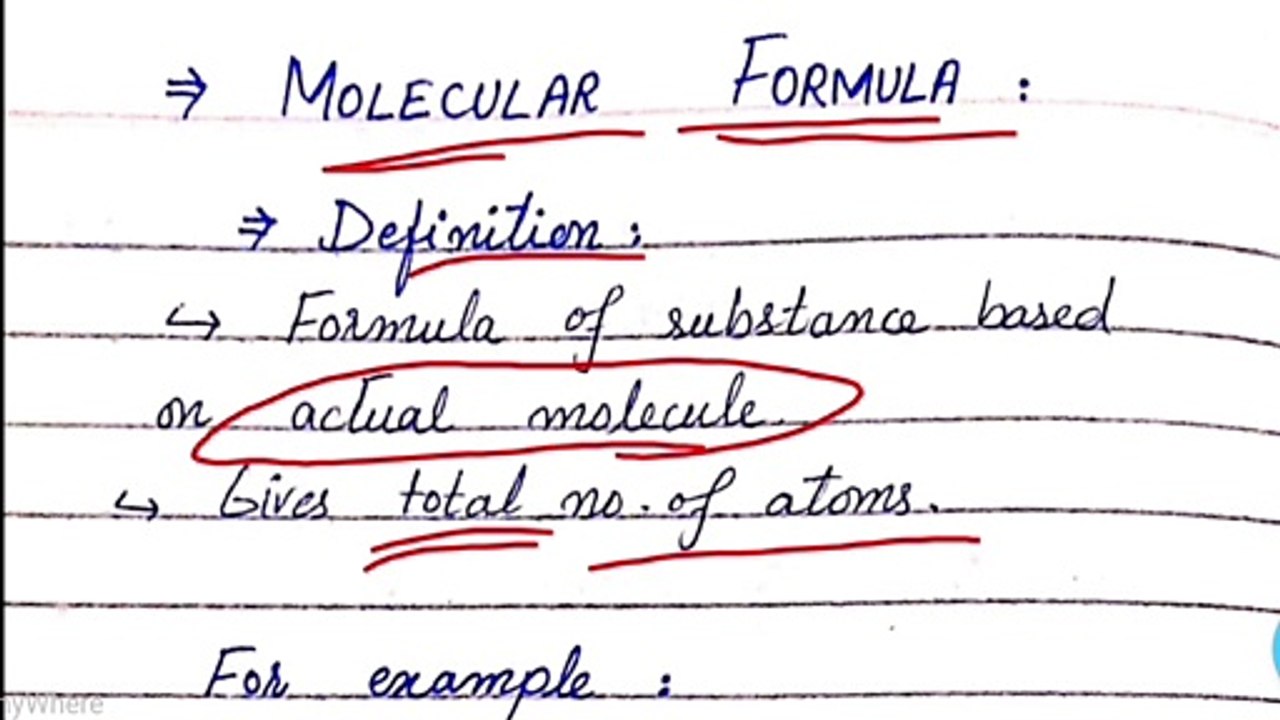 ⇒ MOLECULAR FORMULA :
⇒ Definition :
↳ Formula of substance based
on actual molecule.
↳ Gives total no. of atoms.
For example :